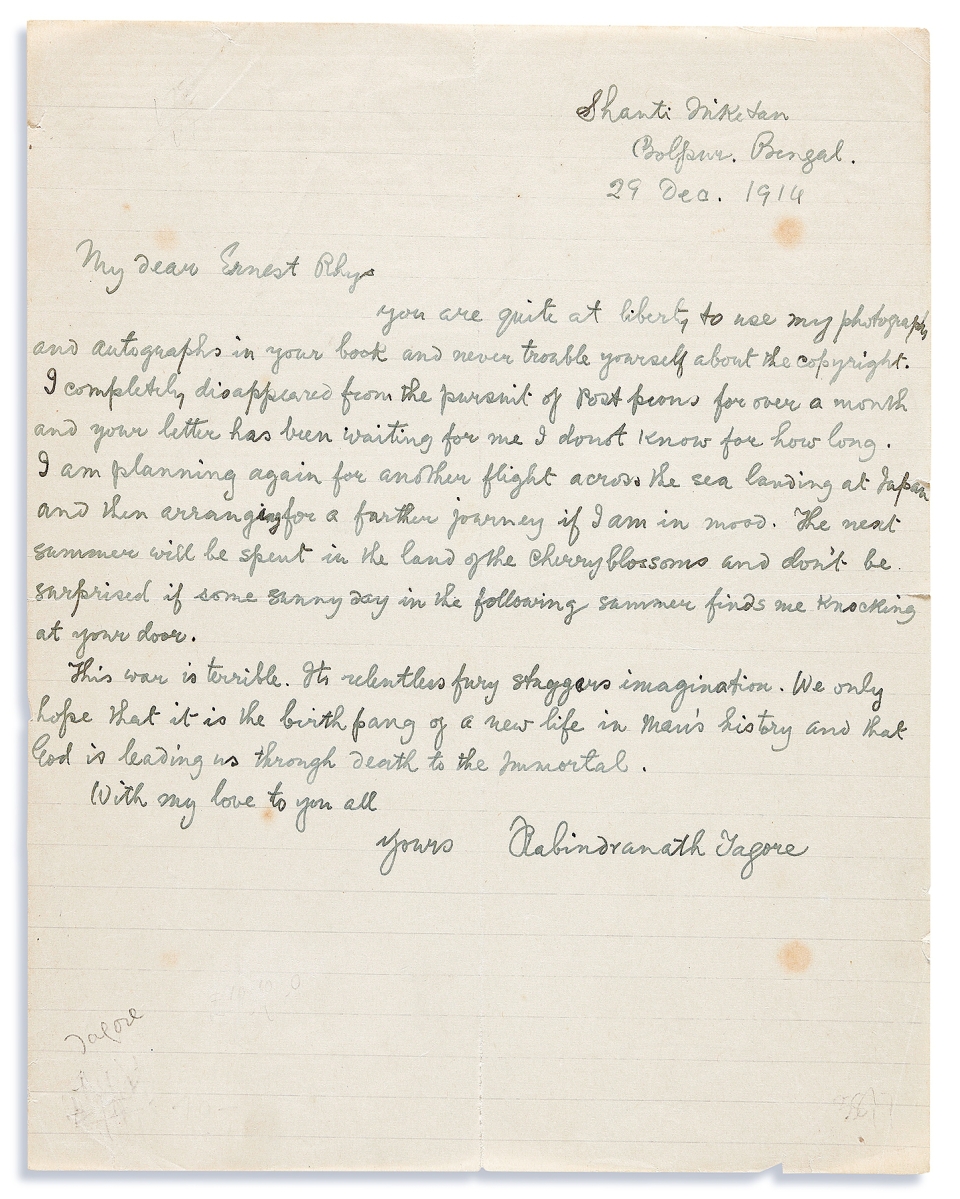 Shanti Niketan
Bolpur. Bengal.
29 Dec. 1914
My dear Ernest Rhys
you are quite at liberty to use my photographs
and autographs in your book and never trouble yourself about the copyright.
I completely disappeared from the pursuit of Post peons for over a month
and your letter has been waiting for me I donot know for how long.
I am planning again for another flight across the sea landing at Japan
and then arranging for a farther journey if I am in mood. The next
summer will be spent in the land of the cherryblossoms and don't be
surprised if some sunny day in the following summer finds me knocking
at your door.
This war is terrible. Its relentless fury staggers imagination. We only
hope that it is the birthpang of a new life in Man's history and that
God is leading us through death to the Immortal.
With my love to you all
Yours Rabindranath Tagore
Tagore